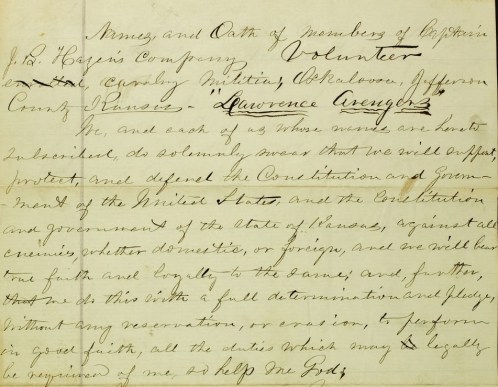 Names and Oath of members of Captain
J. B. Hazen's Company Volunteer
cavalry Militia, Oskaloosa, Jefferson
County Kansas - "Lawrence Avengers"
We, and each of us whose names are hereto
subscribed, do solemnly swear that we will support,
protect, and defend the Constitution and Govern-
-ment of the United States, and the Constitution
and government of the State of Kansas, against all
enemies, whether domestic, or foreign, and we will bear
true faith and loyalty to the same; and, further,
that we do this with a full determination and pledge,
without any reservation, or evasion, to perform
in good faith, all the duties which may legally
be required of me, so help me God;